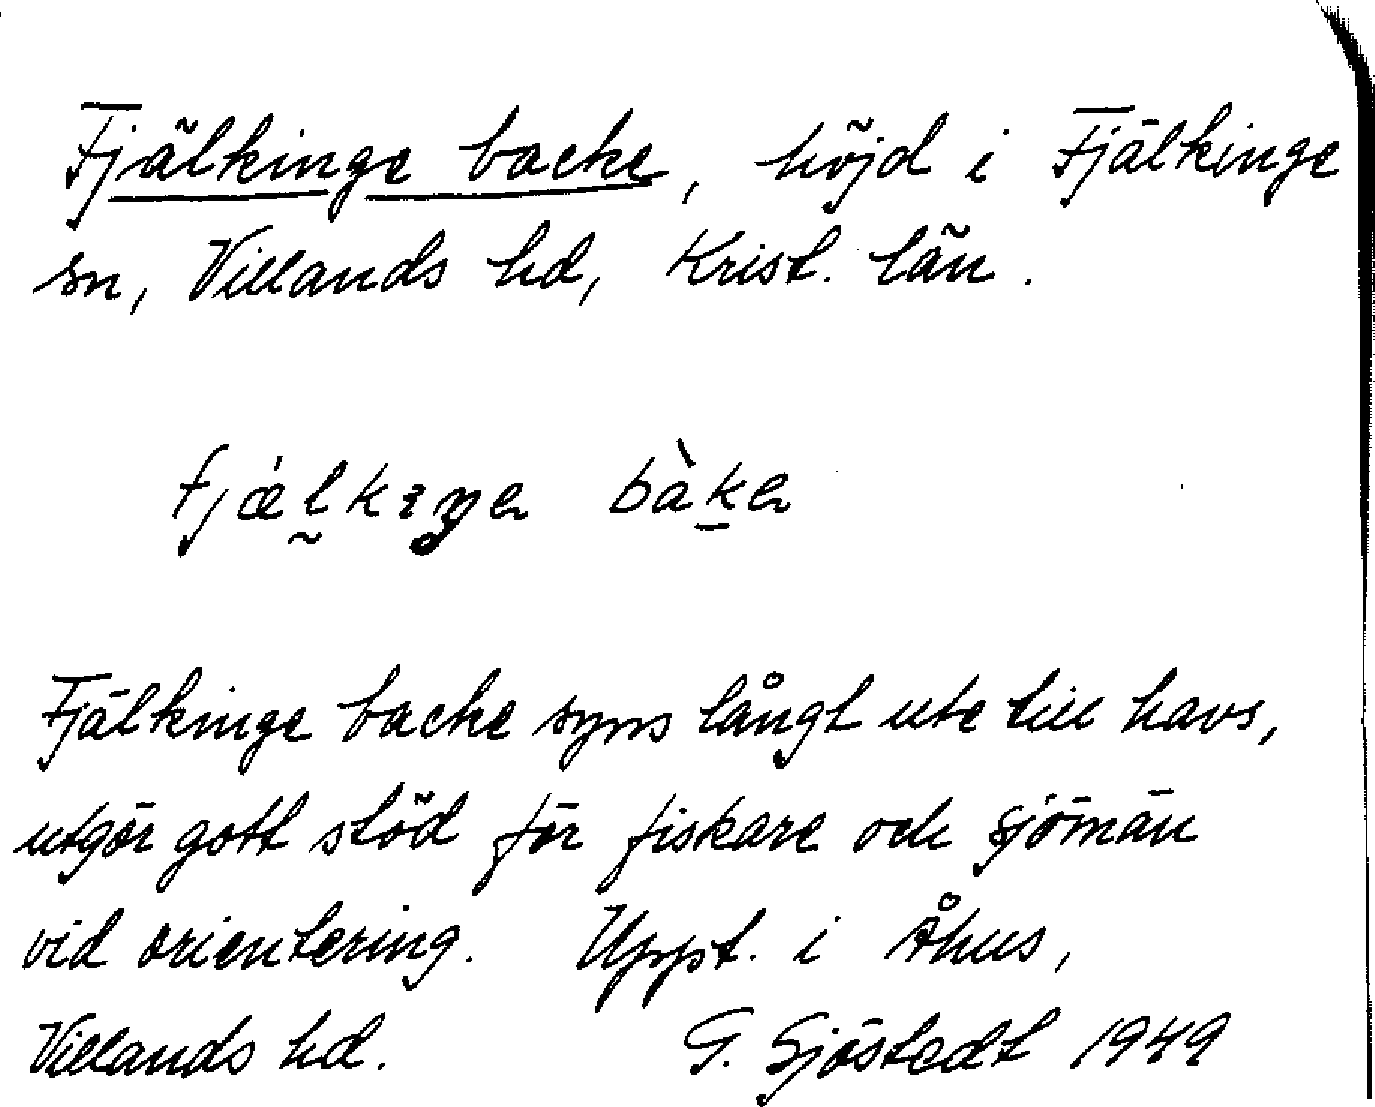 Fjälkinge backe, höjd i Fjälkinge
sn, Villands hd, Krist. län.
fjælkıŋə bàkə
Fjälkinge backe syns långt ute till havs,
utgör gott stöd för fiskare och sjömän
vid orientering. Uppt. i Åhus,
Villands hd. G. Sjöstedt 1949